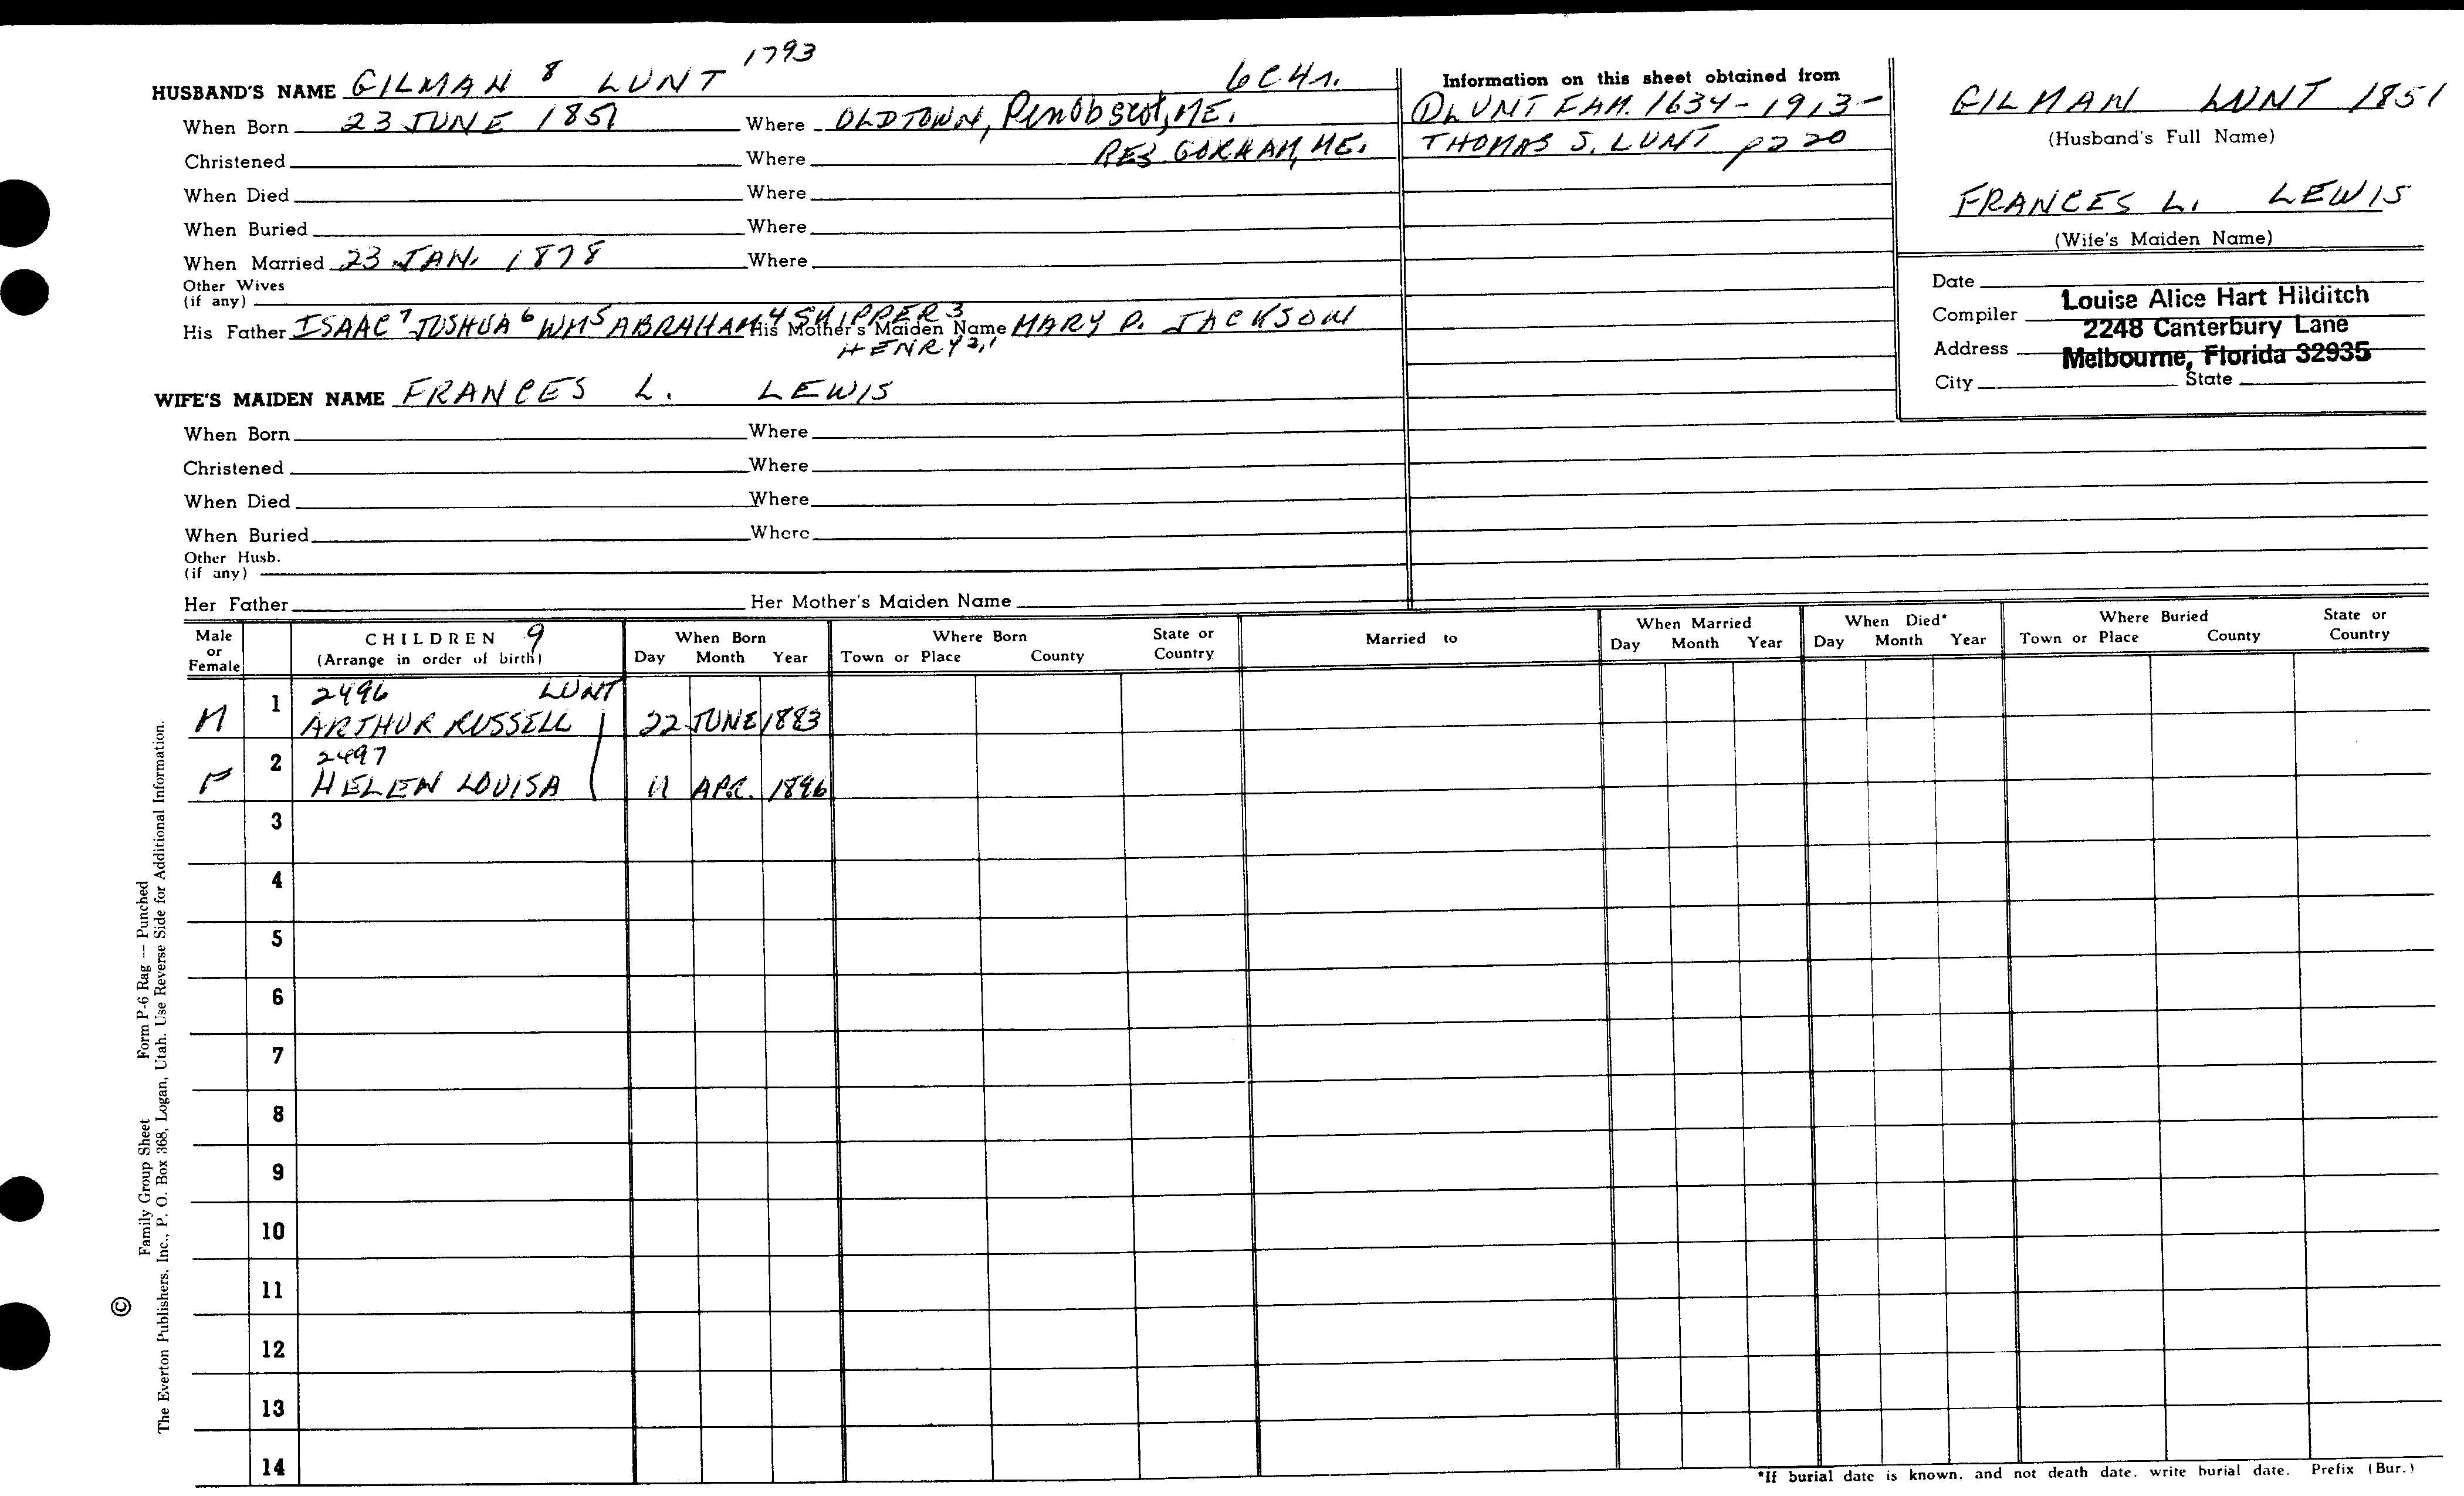 HUSBAND'S NAME GILMAN 8 LUNT 1793 6C4r.
When Born 23 JUNE 1851 Where OLDTOWN, Penobscot, ME.
Christened Where RES GORHAM, ME.
When Died Where
When Buried Where
When Married 23 JAN. 1878 Where
Other Wives
(if any)
His Father ISAAC 7 JOSHUA 6 WM 5 ABRAHAM 4 SKIPPER 3 His Mother's Maiden Name MARY P. JACKSON
HENRY 2,1
WIFE'S MAIDEN NAME FRANCES L. LEWIS
When Born Where
Christened Where
When Died Where
When Buried Where
Other Husb.
(if any)
Her Father Her Mother's Maiden Name
Information on this sheet obtained from
① LUNT FAM. 1634-1913-
THOMAS S. LUNT p220
GILMAN LUNT 1851
(Husband's Full Name)
FRANCES L. LEWIS
(Wife's Maiden Name)
Date
Compiler Louise Alice Hart Hilditch
2248 Canterbury Lane
Address Melbourne, Florida 32935
City State
Male or Female
CHILDREN 9
(Arrange in order of birth)
When Born
Day Month Year
Where Born
Town or Place County State or Country
Married to
When Married
Day Month Year
When Died*
Day Month Year
Where Buried
Town or Place County State or Country
1 2496 LUNT
M ARTHUR RUSSELL 22 JUNE 1883
2 2497
F HELEN LOUISA 11 APR. 1896
3
4
5
6
7
8
9
10
11
12
13
14
*If burial date is known, and not death date, write burial date. Prefix (Bur.)
© Family Group Sheet Form P-6 Rag — Punched
The Everton Publishers, Inc., P. O. Box 368, Logan, Utah. Use Reverse Side for Additional Information.